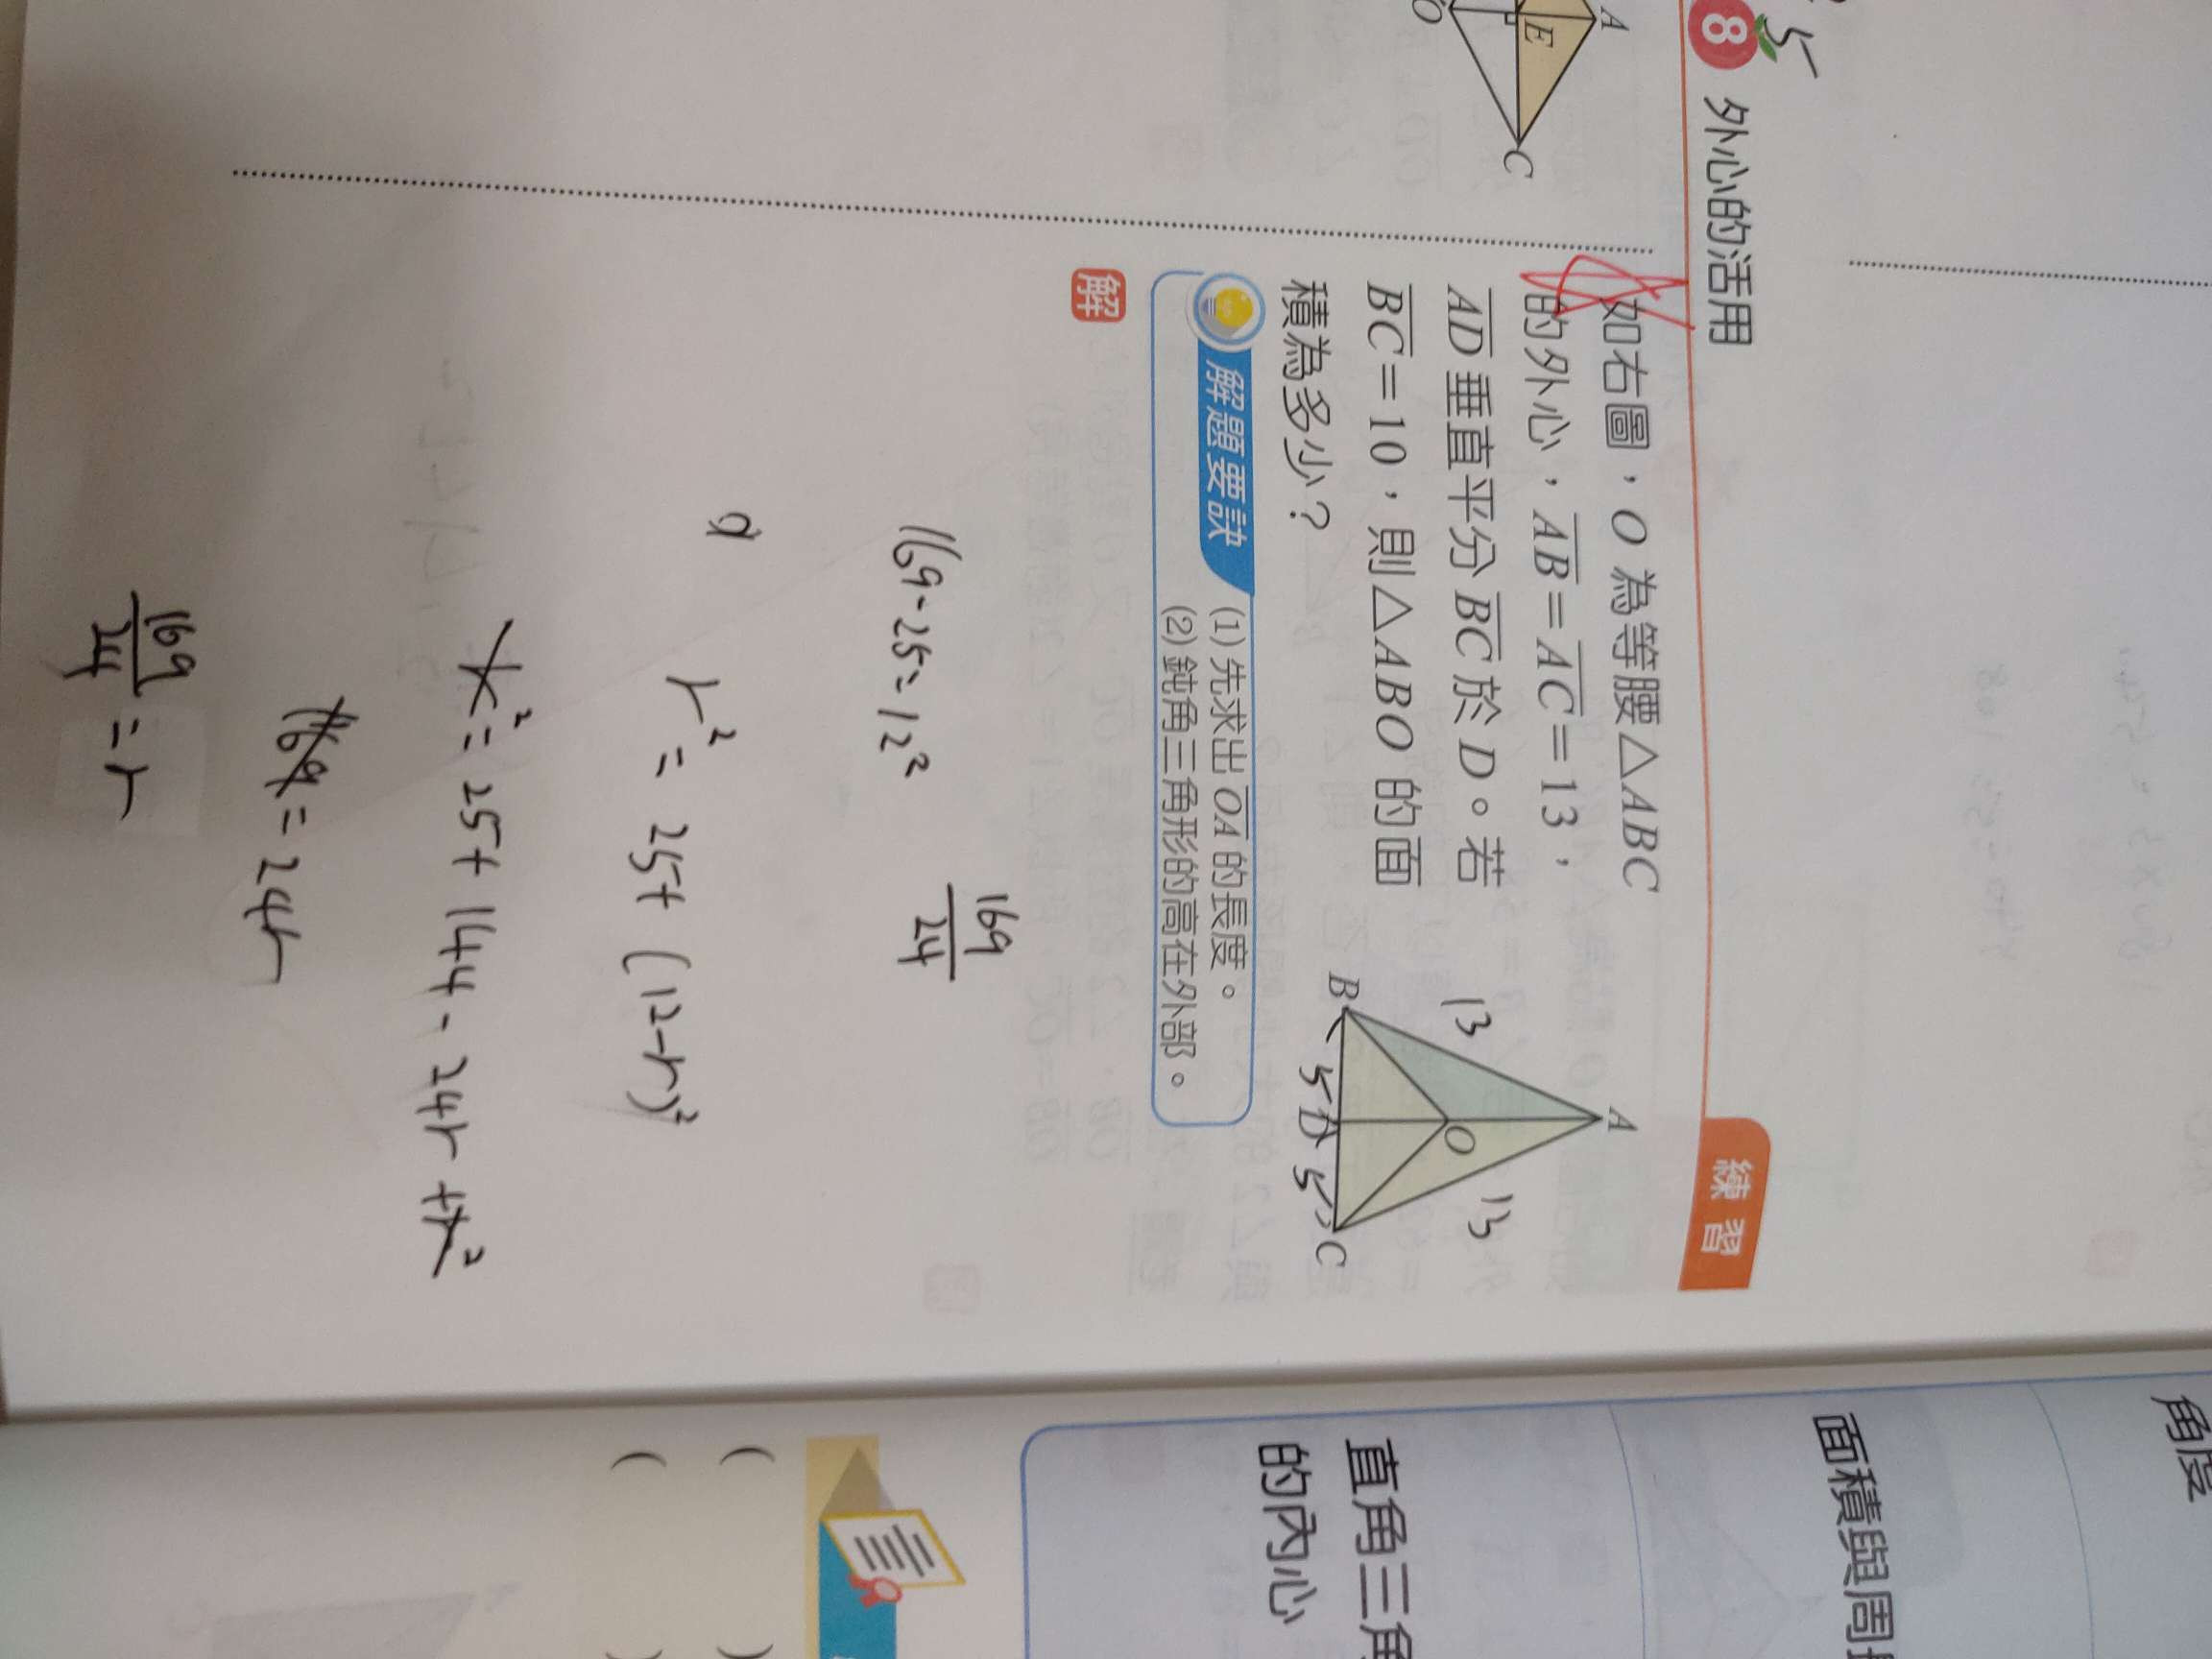 5
8 外心的活用
練習
A
E
O
C
如右圖，O 為等腰△ABC
的外心，AB=AC=13，
AD 垂直平分 BC 於 D。若
BC=10，則△ABO 的面
積為多少？
A
13
13
O
B
5
D
5
C
解題要訣
(1) 先求出 OA 的長度。
(2) 鈍角三角形的高在外部。
解
169-25=12²
169/24
r²=25+(12-r)²
r²=25+144-24r+r²
169=24r
169/24=r
角度
面積與周
直角三角
的內心
( )
( )